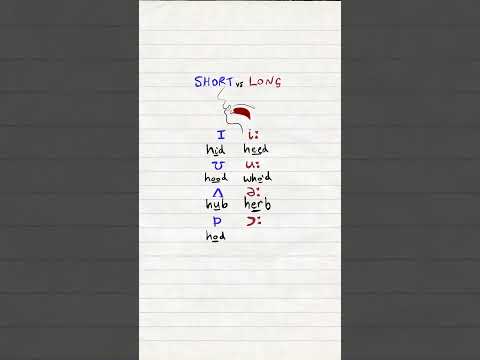 SHORT vs LONG
ɪ iː
hid heed
ʊ uː
hood who'd
ʌ əː
hub herb
ɒ ɔː
hod